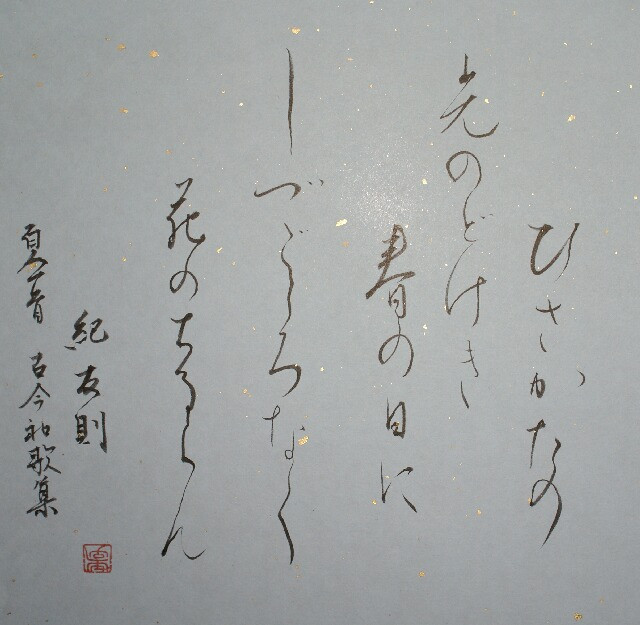 ひさかたの
光のどけき
春の日に
しづごゝろなく
花のちるらん
紀友則
百人一首 古今和歌集